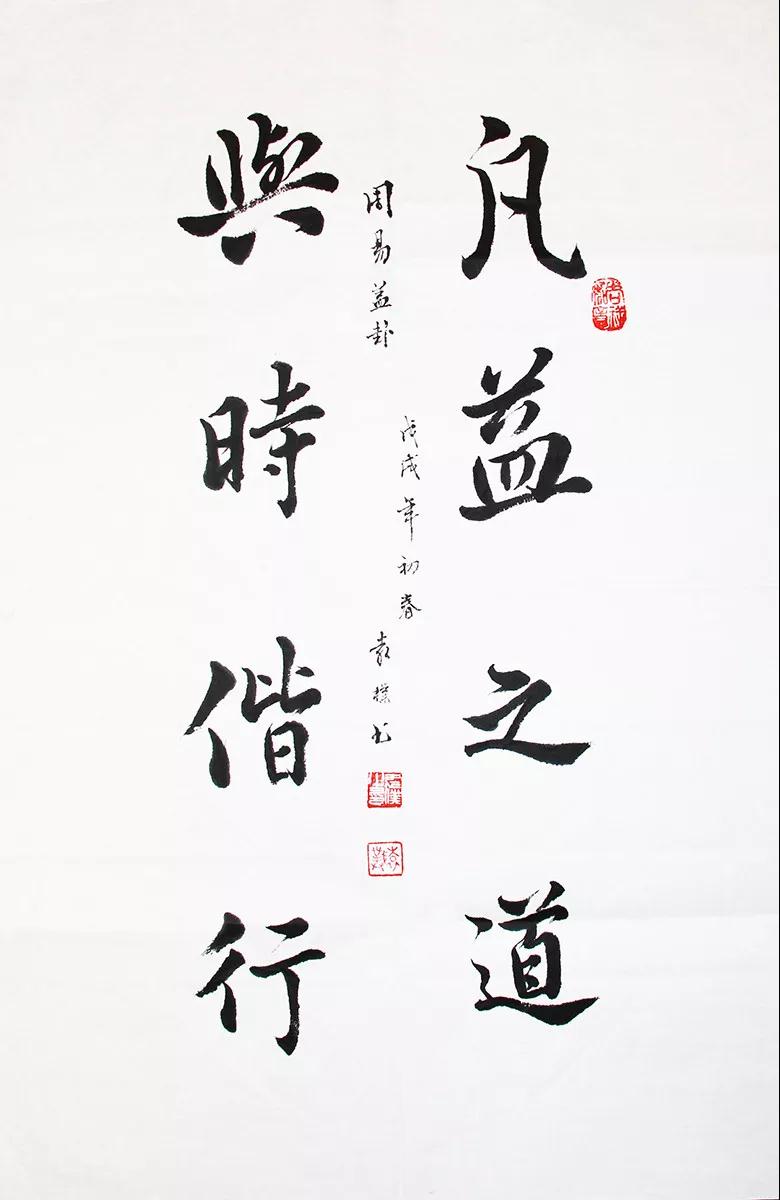 凡益之道
與時偕行
周易益卦
戊戌年初春
袁樸书